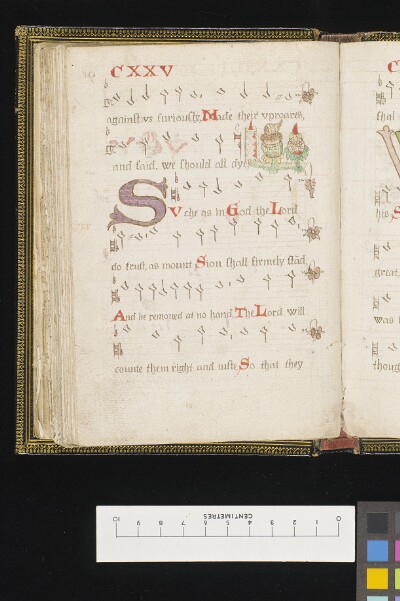 CXXV
against vs furiously, Made their vproares,
and said, we should all dye
Suche as in God the Lord
do trust, as mount Sion shall firmely stād,
And be remoued at no hand The Lord will
counte them right and iuste, So that they
C
shal
his S
great
was
thoug
CENTIMETRES
10 9 8 7 6 5 4 3 2 1 0